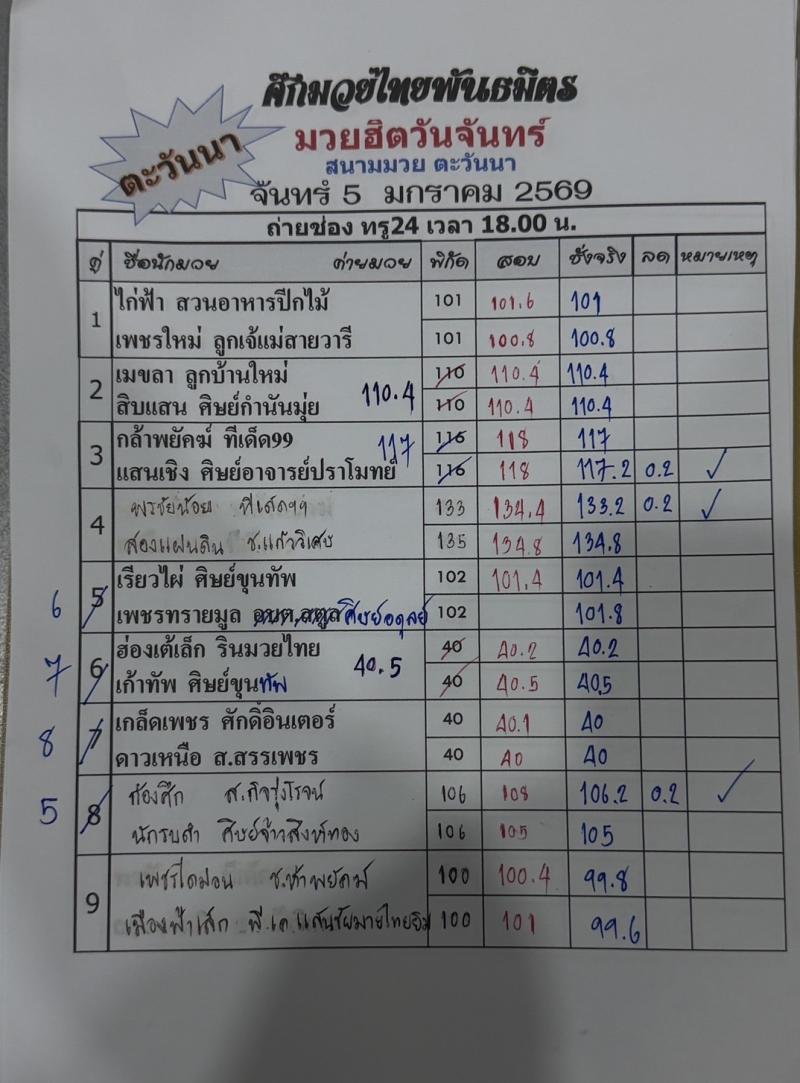 ศึกมวยไทยพันธมิตร
ตะวันนา
มวยฮิตวันจันทร์
สนามมวย ตะวันนา
จันทร์ 5 มกราคม 2569
ถ่ายช่อง ทรู24 เวลา 18.00 น.
คู่ ชื่อนักมวย ค่ายมวย พิกัด สอบ ชั่งจริง ลด หมายเหตุ
1 ไก่ฟ้า สวนอาหารปีกไม้ 101 101.6 101
เพชรใหม่ ลูกเจ้แม่สายวารี 101 100.8 100.8
2 เมขลา ลูกบ้านใหม่ 110.4 110 110.4 110.4
สิบแสน ศิษย์กำนันมุ่ย 110 110.4 110.4
3 กล้าพยัคฆ์ ทีเด็ด99 117 116 118 117
แสนเชิง ศิษย์อาจารย์ปราโมทย์ 116 118 117.2 0.2 ✓
4 พรชัยน้อย ทีเด็ด99 133 134.4 133.2 0.2 ✓
สองแผ่นดิน ช.แก้ววิเศษ 135 134.8 134.8
6 5 เรียวไผ่ ศิษย์ขุนทัพ 102 101.4 101.4
เพชรทรายมูล อบต.สตูล ศิษย์อดุลย์ 102 101.8
7 6 ฮ่องเต้เล็ก รินมวยไทย 40.5 40 40.2 40.2
เก้าทัพ ศิษย์ขุนทัพ 40 40.5 40.5
8 7 เกล็ดเพชร ศักดิ์อินเตอร์ 40 40.1 40
ดาวเหนือ ส.สรรเพชร 40 40 40
5 8 ก้องศึก ส.กิจรุ่งโรจน์ 106 108 106.2 0.2 ✓
นักรบดำ ศิษย์จ่าสิงห์ทอง 106 105 105
9 เพชรไดม่อน ช.ห้าพยัคฆ์ 100 100.4 99.8
เมืองฟ้าเล็ก พี.เค.แสนชัยมวยไทยยิม 100 101 99.6